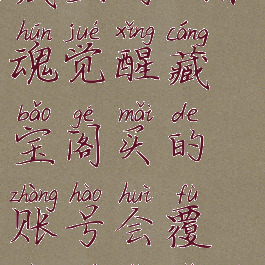 hún jué xǐng cáng
魂觉醒藏
bǎo gé mǎi de
宝阁买的
zhàng hào huì fù
账号会覆